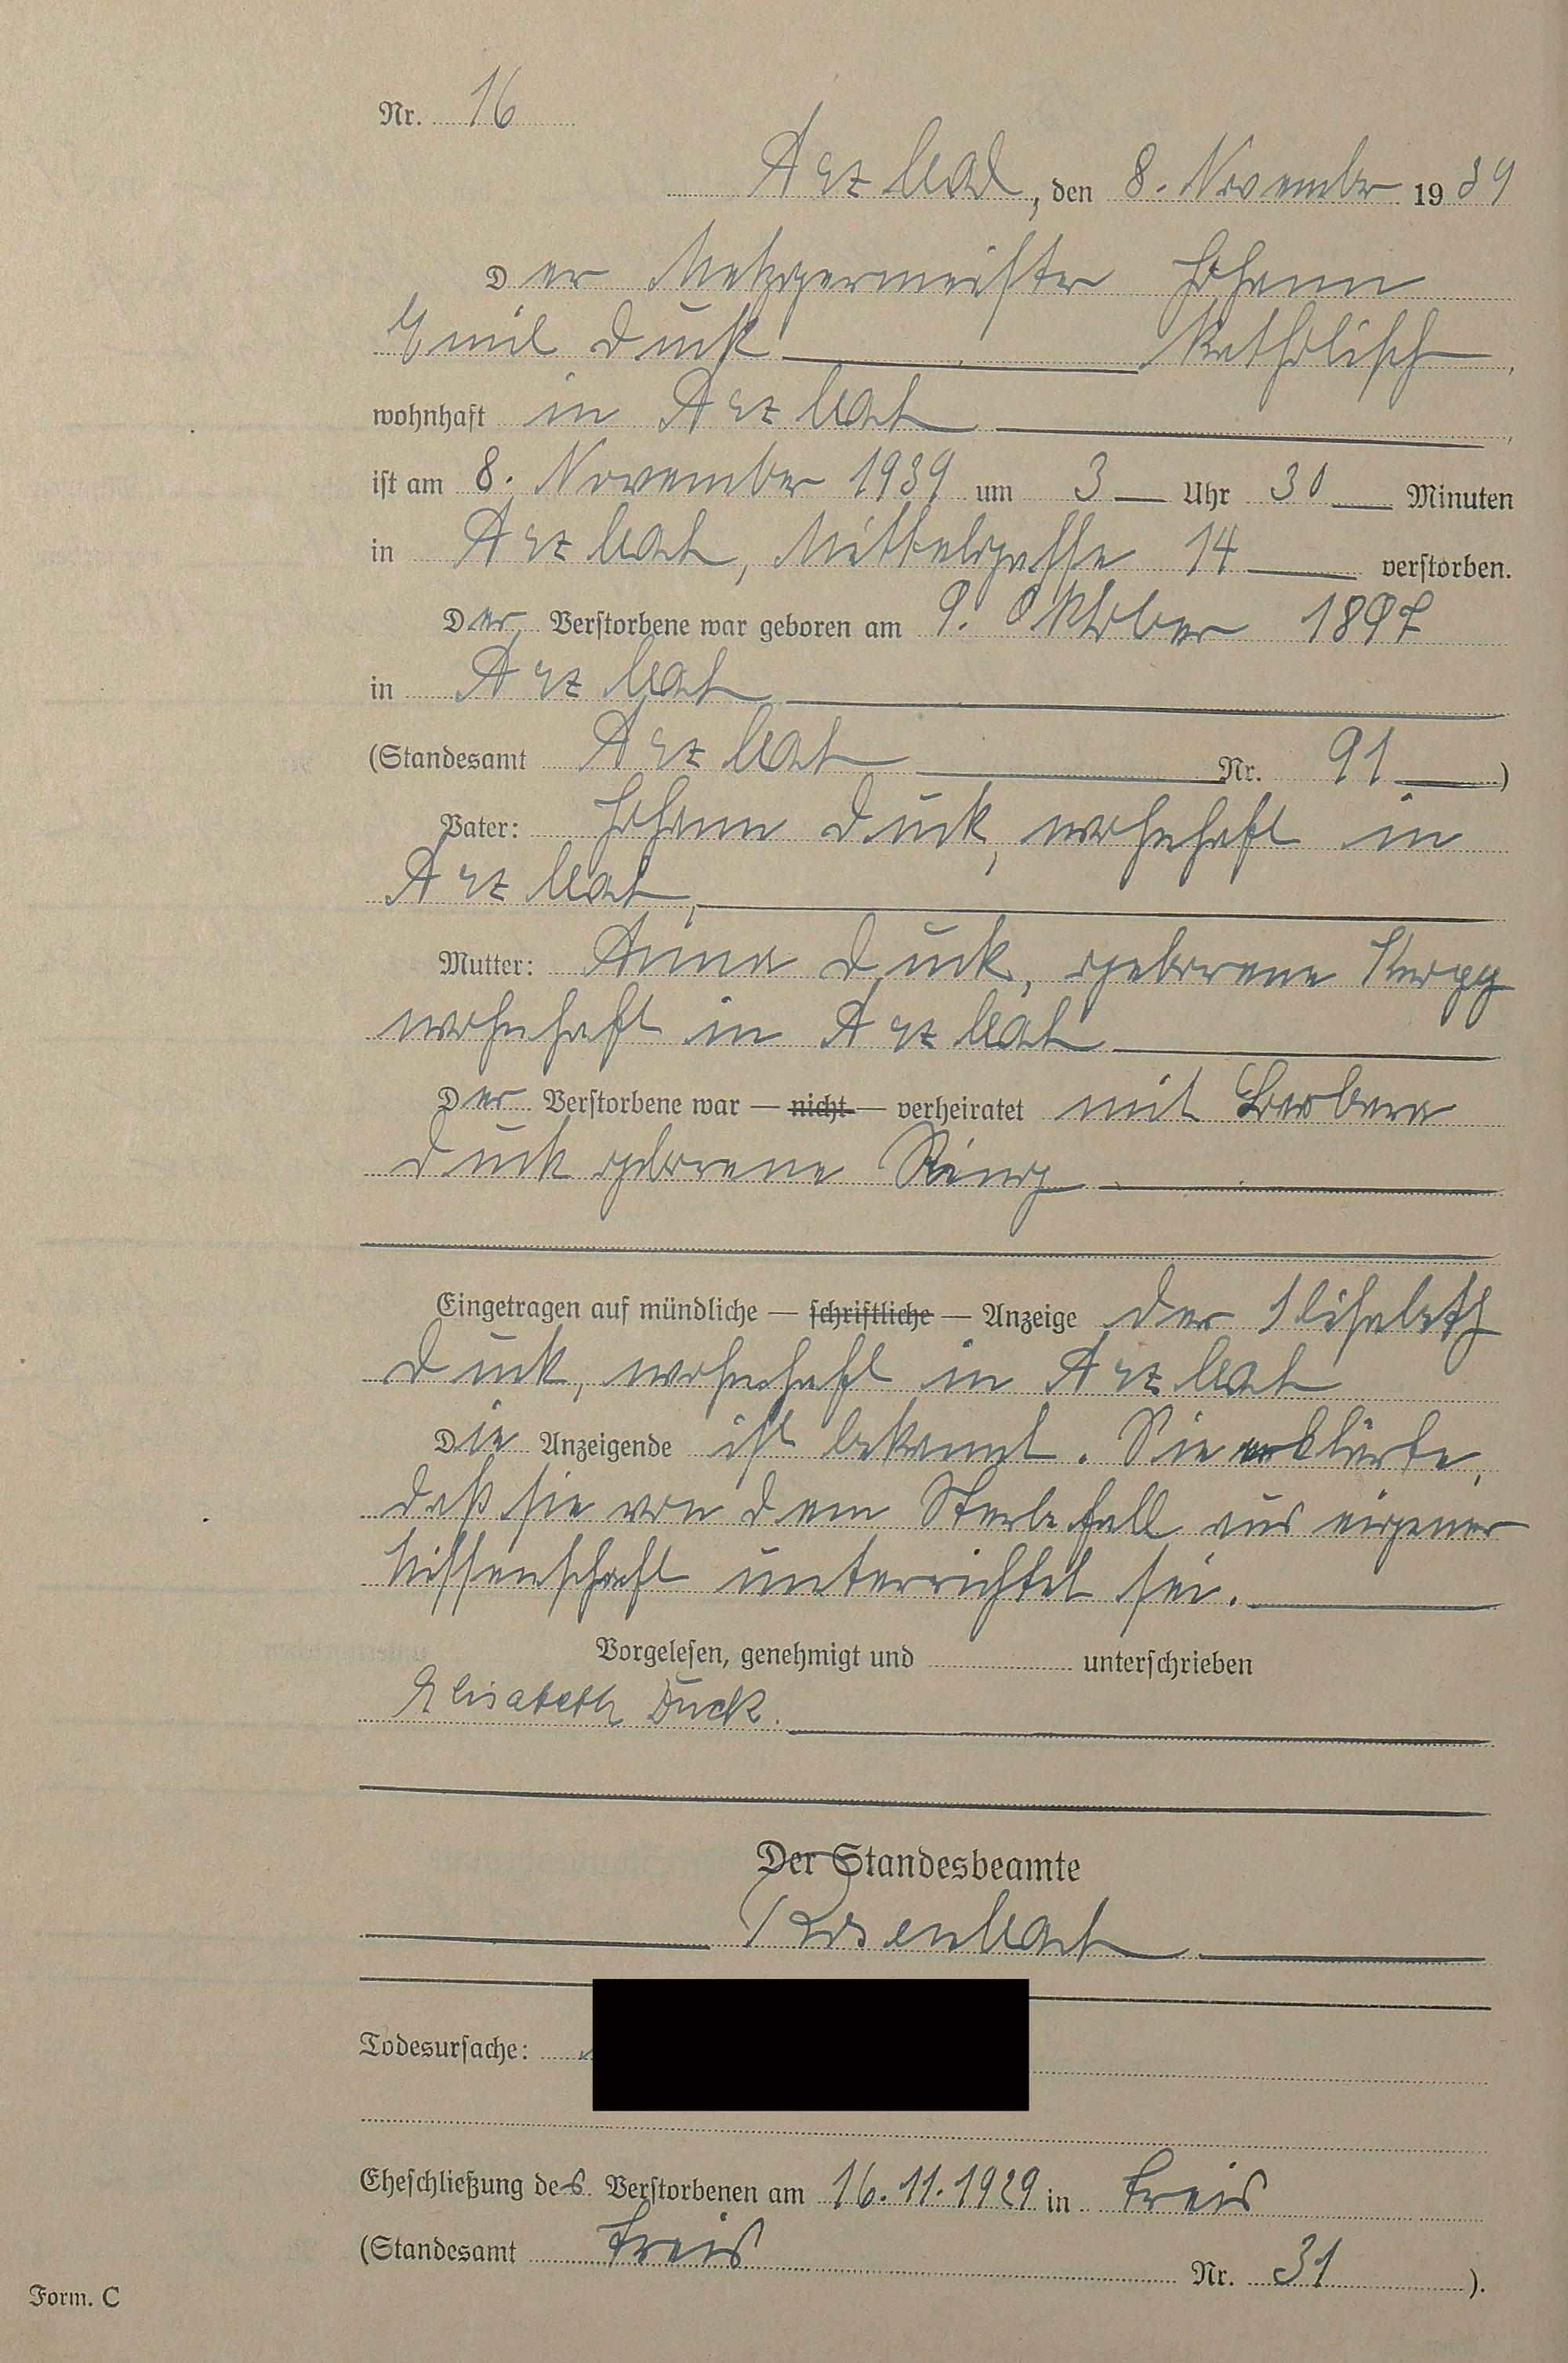 Nr. 16
Arzbach, den 8. November 1939
Der Metzgermeister Johann
Emil Duck katholisch,
wohnhaft in Arzbach,
ist am 8. November 1939 um 3 Uhr 30 Minuten
in Arzbach, Mittelgasse 14 verstorben.
Der Verstorbene war geboren am 9. Oktober 1897
in Arzbach
(Standesamt Arzbach Nr. 91)
Vater: Johann Duck, wohnhaft in
Arzbach,
Mutter: Anna Duck, geborene
wohnhaft in Arzbach
Der Verstorbene war — nicht — verheiratet mit Barbara
Duck geborene Ring
Eingetragen auf mündliche — schriftliche — Anzeige der Elisabeth
Duck, wohnhaft in Arzbach
Die Anzeigende ist bekannt. Sie erklärte,
daß sie von dem Sterbefall aus eigener
Wissenschaft unterrichtet sei.
Vorgelesen, genehmigt und unterschrieben
Elisabeth Duck.
Der Standesbeamte
Rosenbach
Todesursache:
Eheschließung des Verstorbenen am 16.11.1929 in Treis
(Standesamt Treis Nr. 31).
Form. C